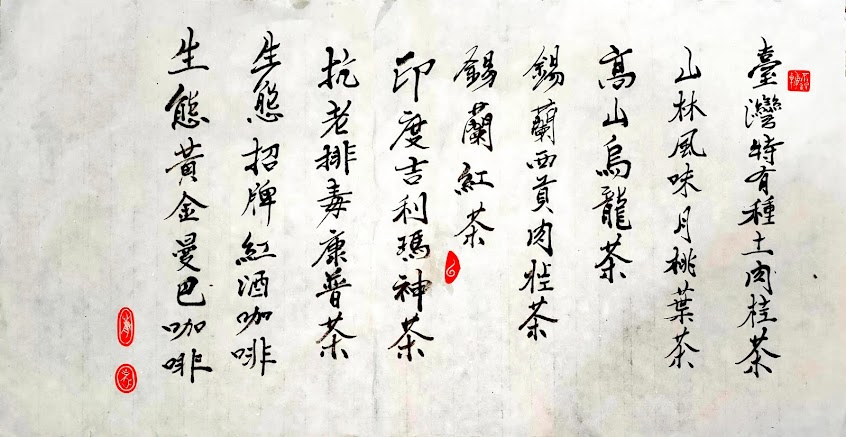 臺灣特有種土肉桂茶
山林風味月桃葉茶
高山烏龍茶
錫蘭西貢肉桂茶
錫蘭紅茶
印度吉利瑪神茶
抗老排毒康普茶
生態招牌紅酒咖啡
生態黃金曼巴咖啡